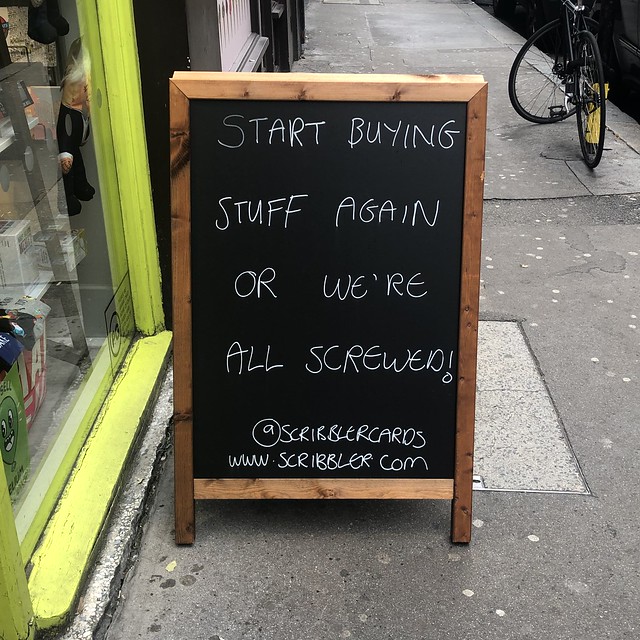 START BUYING
STUFF AGAIN
OR WE'RE
ALL SCREWED!
@SCRIBBLERCARDS
WWW.SCRIBBLER.COM